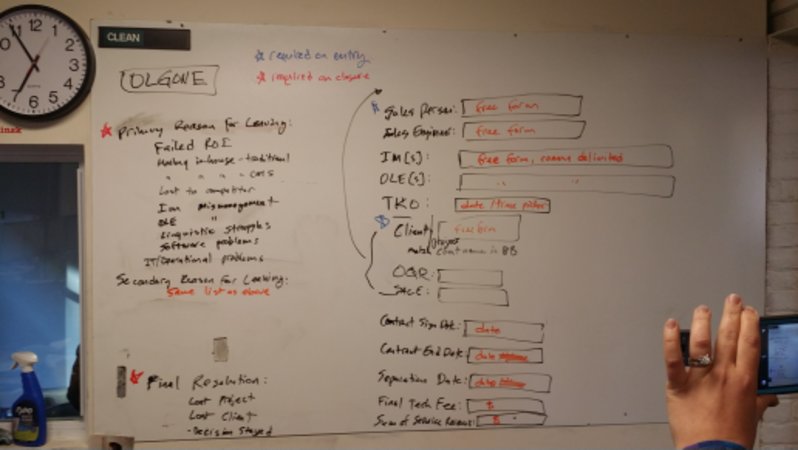 CLEAN
OLGONE
* required on entry
* required on closure
* Primary Reason for Leaving:
Failed ROI
Making in-house - traditional
" " " - CATS
Lost to competitor
IM mismanagement
OLE "
Linguistic struggles
Software problems
IT/Operational problems
Secondary Reason for Leaving:
Same list as above
* Final Resolution:
Lost Project
Lost Client
- Decision Stayed
* Sales Person: free form
Sales Engineer: free form
IM[s]: free form, comma delimited
OLE[s]: " "
TKO: date/time picker
* Client/Project free form
match cont name in BB
OQR:
SAGE:
Contract Sign Date: date
Contract End Date: date
Separation Date: date
Final Tech Fee: $
Sum of Service Revenue: $